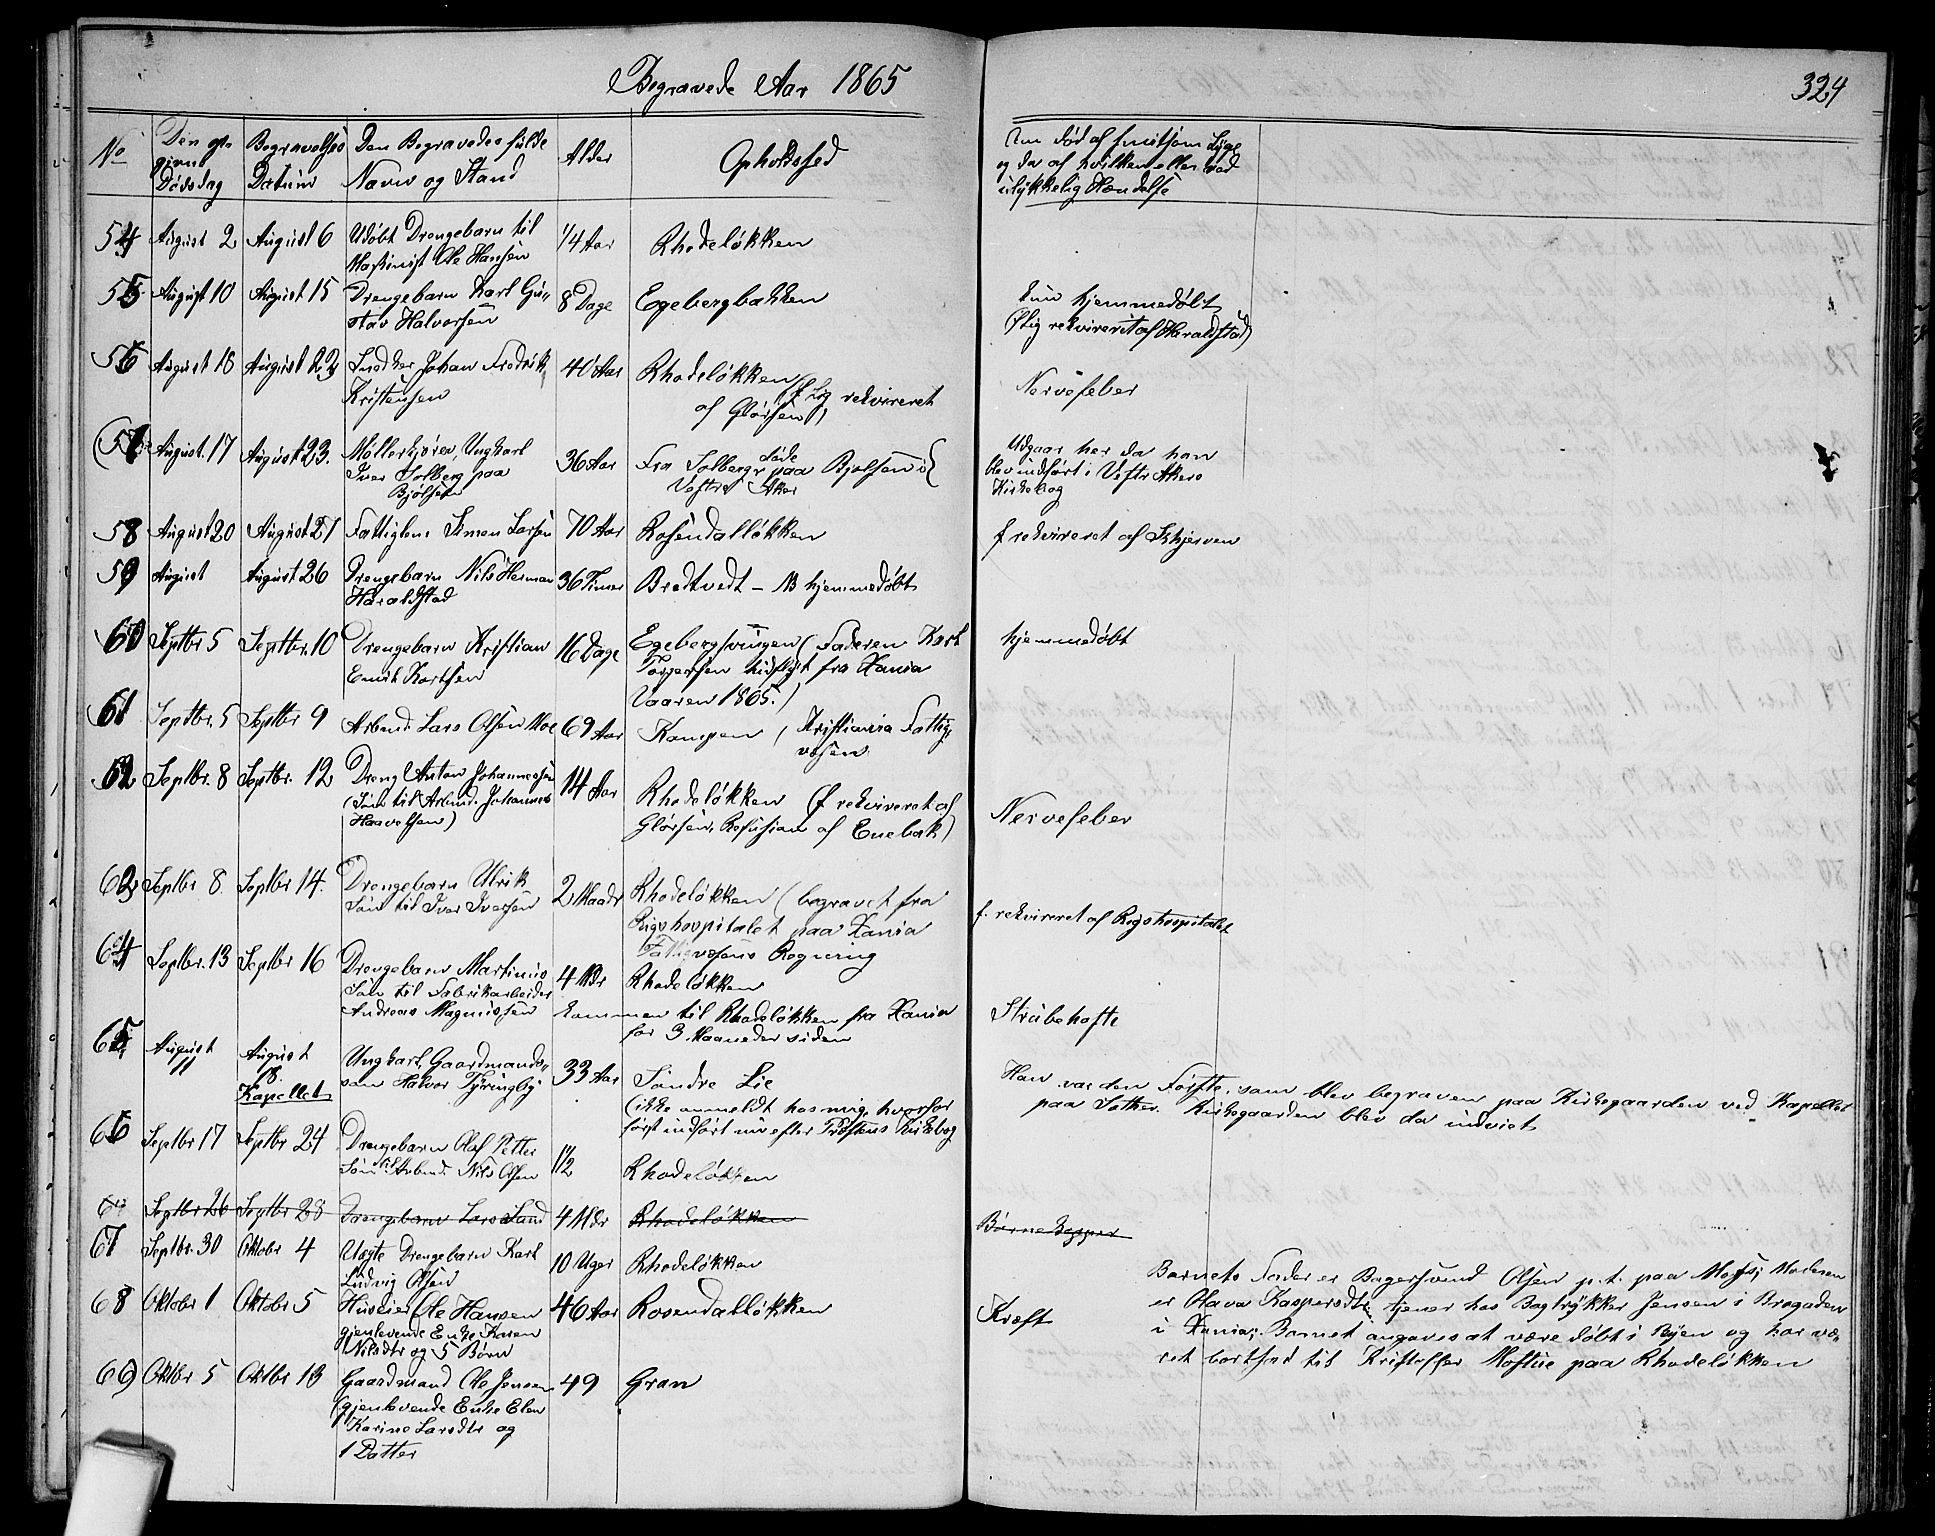 Begravede Aar 1865
324
No
Den op-
givne
Dødsdag
Begravelses
Datum
Den Begravedes fulde
Navn og Stand
Alder
Opholdssted
Om død af smitsom Syge
og da af hvilken eller ved
ulykkelig Hændelse
54 August 2 August 6 Udøbt Drengebarn til 1/4 Aar Rhodeløkken
Maskinist Ole Hansen
55 August 10 August 15 Drengebarn Karl Gu- 8 Dage Egebergbakken
stav Halvorsen
kun hjemmedøbt
(Lig rekvireret af Heraldstad)
56 August 18 August 22 Snedker Johan Fredrik 40 Aar Rhodeløkken (f Lig rekvireret
Kristensen af Glørsen) Nervefeber
(57 August 17 August 23. Møllerkjører, Ungkarl 36 Aar Fra Solberg paa Bjølsen i
Iver Solberg paa Vestre Aker
Bjølsen
Udgaar her da han
blev indført i Vestr Akers
Kirkebog
58 August 20 August 27 Fattiglem Simen Larsen 70 Aar Rosendalløkken f rekvireret af Skjerven
59 August August 26 Drengebarn Nils Herman 36 Timer Bredtvedt - NB hjemmedøbt
Haraldstad
60 Septbr 5 Septbr. 10 Drengebarn Kristian 16 Dage Egebergsvingen (Faderen Karl hjemmedøbt
Emil Karlsen Torgersen hidflyt fra Xania
Vaaren 1865.)
61 Septbr. 5 Septbr 9 Arbmd. Lars Olsen Moe 69 Aar Kampen, Kristiania Fattig-
væsen
62 Septbr. 8 Septbr. 12 Dreng Anton Johannessen 14 Aar Rhodeløkken (f rekvireret af Nervefeber
(Søn til Arbmd. Johannes Glørsen, Refusion af Enebak)
Haavelsen)
63 Septbr 8. Septbr 14. Drengebarn Ulrik 2 Maadr Rhodeløkken (begravet fra
Søn til Iver Iversen Rigshospitalet paa Xania f. rekvireret af Rigshospitalet
Fattigvæsens Regning
64 Septbr. 13 Septbr 16 Drengebarn Martinus 4 Mdr Rhodeløkken
Søn til Fabrikarbeider
Andreas Magnussen kommen til Rhodeløkken fra Xania Strubehoste
for 3 Maaneder siden
65 August 11 August 18. Ungkarl, Gaardmands- 33 Aar Søndre Lie
Kapellet søn Halvor
(ikke anmeldt hos mig, hvorfor
først indført nu efter Præstens Kirkebog
Han var den Første, som blev begraven paa Kirkegaarden ved Kapellet
paa Kirkegaarden blev da indviet
66 Septbr 17 Septbr 24 Drengebarn Olaf Petter 1 1/2 Rhodeløkken
Søn til Arbmd. Nils Olsen
67 Septbr 26 Septbr 28 Drengebarn Lars Lund 4 Mdr Rhodeløkken Børnekopper
67 Septbr. 30 Oktobr 4 Uægte Drengebarn Karl 10 Uger Rhodeløkken
Ludvig Olsen
Barnets Fader er Bagersvend Olsen p. t. paa Moss; Moderen
er Olava Kaspersdtr, tjener hos Bogtrykker Jensen i Brogaden
i Xania; Barnet angaves at være døbt i Byen og har væ-
ret bortsat til Kristoffer Mostue paa Rhodeløkken
68 Oktobr 1 Oktobr 5 Huseier Ole Hansen 46 Aar Rosendalløkken Kræft
gjenlevende Enke Karen
Nilsdtr og 5 Børn
69 Oktbr 5 Oktbr 13 Gaardmand Ole Jensen 49 Gran
(gjenlevende Enke Elen
Karine Larsdtr og
1 Datter